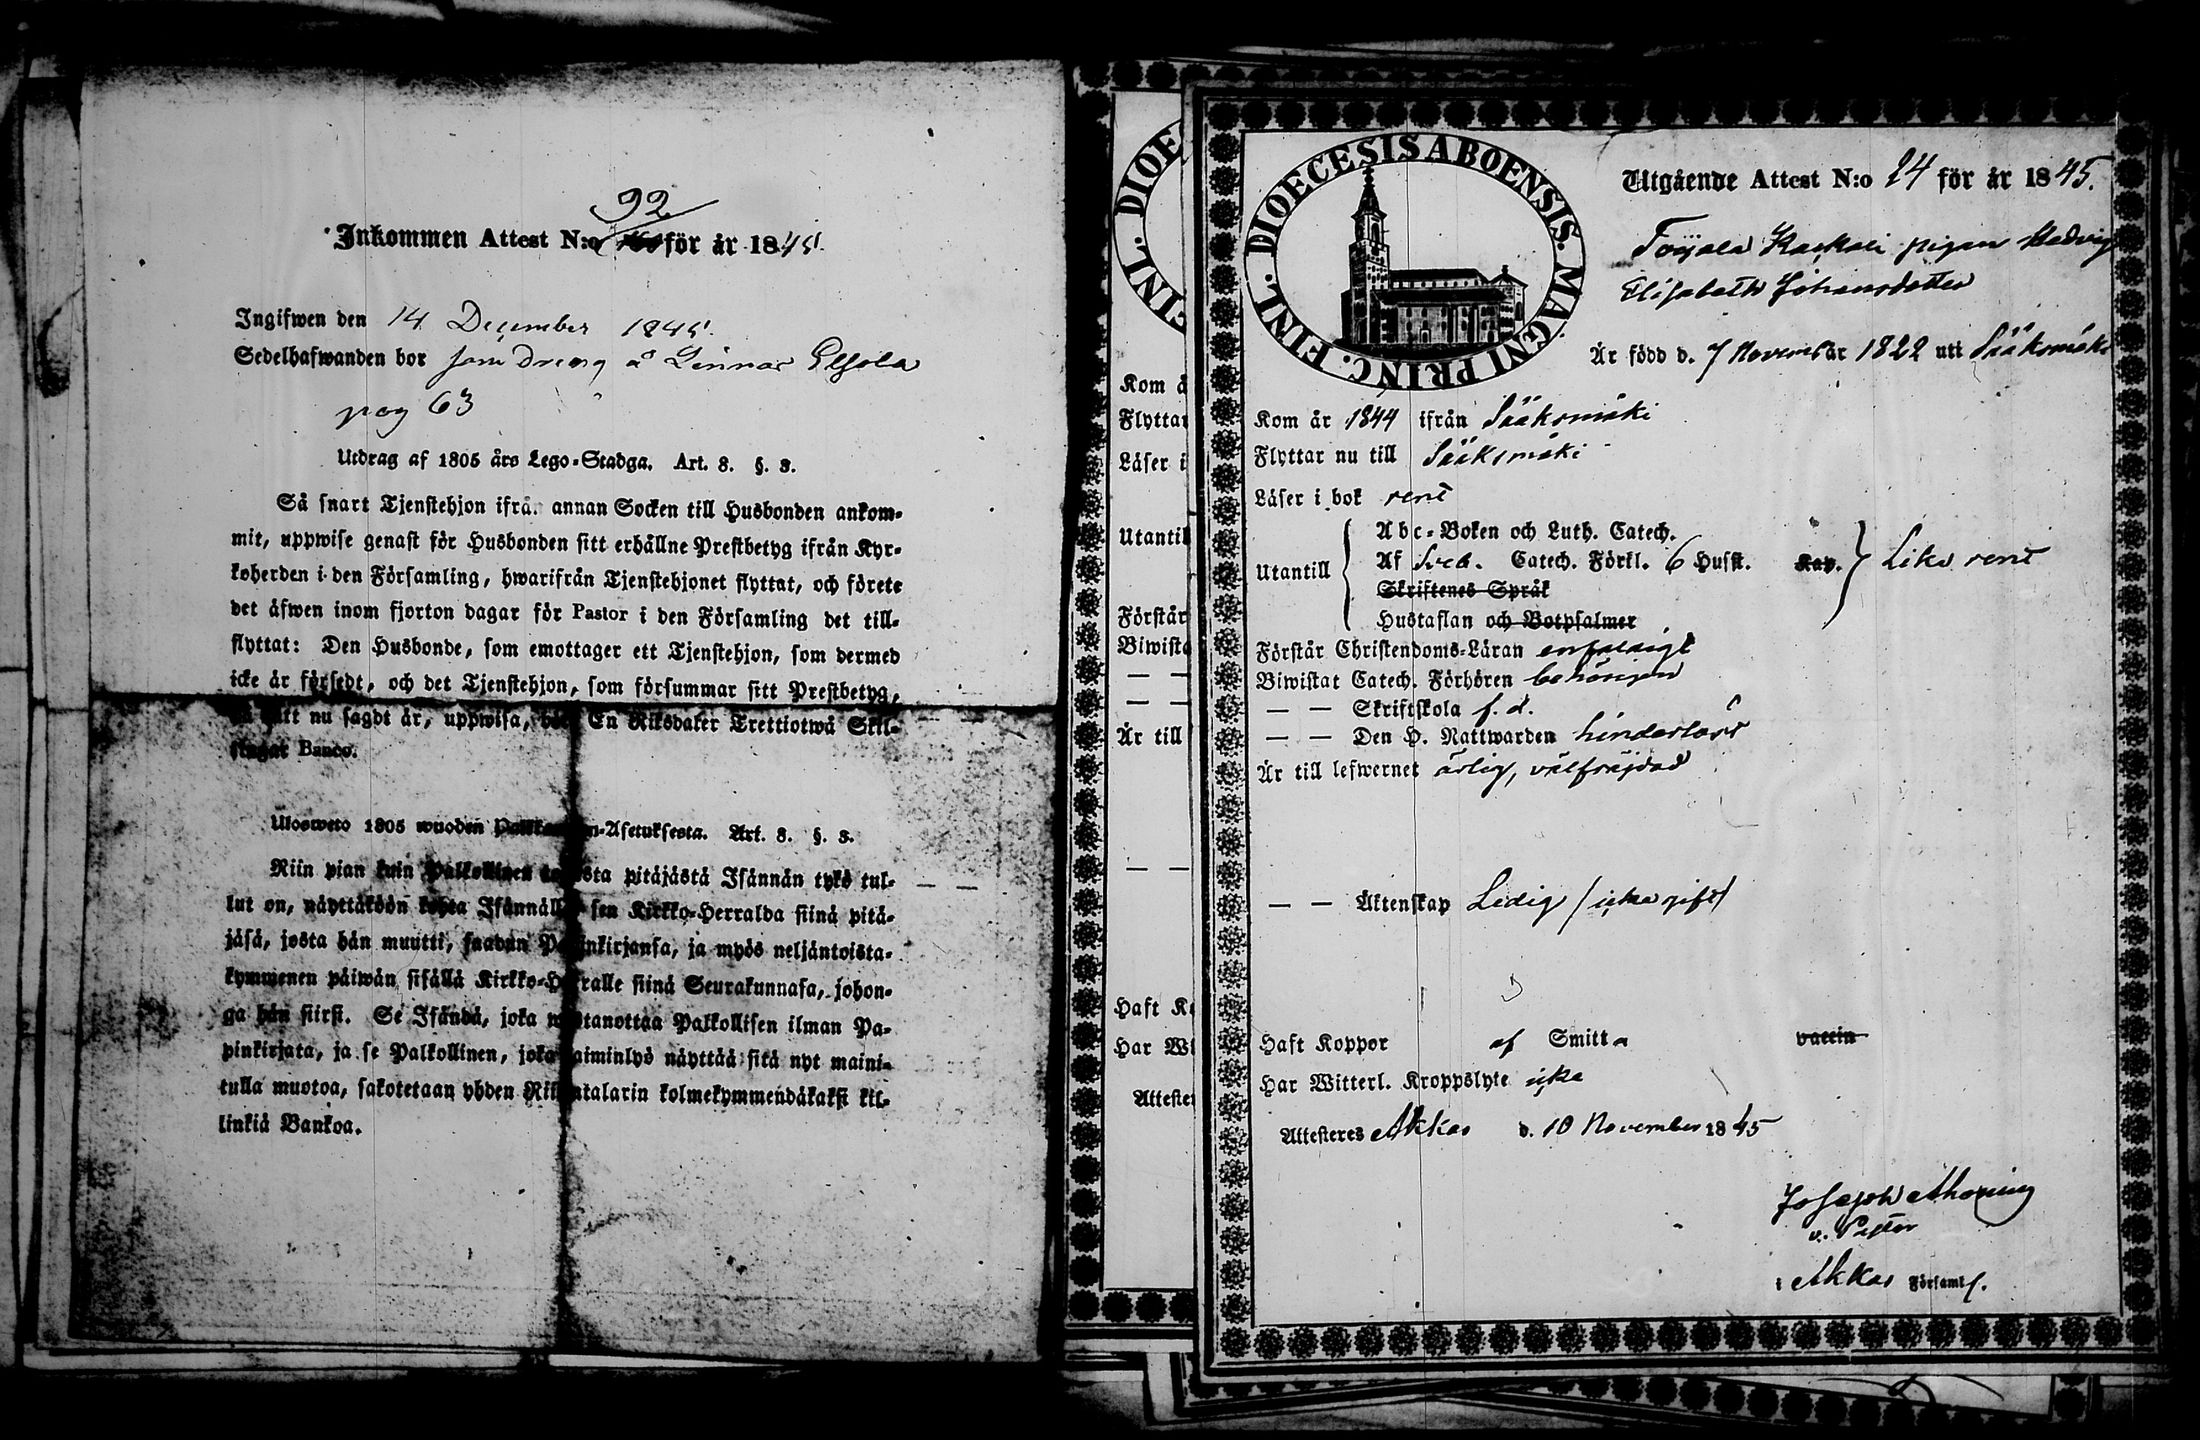 92
Inkommen Attest N:o för år 1845.
Ingifwen den 14 December 1845.
Sedelhafwanden bor som dreng å Linnas Elfola
pag 63
Utdrag af 1805 års Lego-Stadga. Art. 8. §. 3.
Så snart Tjenstehjon ifrån annan Socken till Husbonden ankom-
mit, uppwise genast för Husbonden sitt erhållne Prestbetyg ifrån Kyr-
koherden i den Församling, hwarifrån Tjenstehjonet flyttat, och förete
det äfwen inom fjorton dagar för Pastor i den Församling det till-
flyttat: Den Husbonde, som emottager ett Tjenstehjon, som dermed
icke är försedt, och det Tjenstehjon, som försummar sitt Prestbetyg,
sätt nu sagdt är, uppwisa, En Riksdaler Trettiotwå Skil-
lingar Banco.
Ulosweto 1805 wuoden Asetuksesta. Art. 8. §. 3.
Niin pian kuin Palkollinen toisesta pitäjästä Isännän tykö tul-
lut on, näyttäköön kohta Isännälle sen Kirkko-Herralda siinä pitä-
jäsä, josta hän muutti, saadun Papinkirjansa, ja myös neljäntoista-
kymmenen päiwän sisällä Kirkko-Herralle siinä Seurakunnasa, johon-
ga hän siirsi. Se Isändä, joka wastanottaa Palkollisen ilman Pa-
pinkirjata, ja se Palkollinen, joka laiminlyö näyttää sitä nyt maini-
tulla muotoa, sakotetaan yhden Riksintalarin kolmekymmendäkaksi kil-
linkiä Bankoa.
DIOE
FINL.
Kom å
Flyttar
Läser i
Utantill
Förstår
Biwista
— —
— —
Är till
— —
Haft Ko
Har Wi
Attester
DIOECESIS ABOENSIS. MAGNI PRINC. FINL.
Utgående Attest N:o 24 för år 1845.
Toijala Kaskali pigan Hedvig
Elisabeth Johansdotter
Är född d. 7 November 1822 uti Sääksmäki
Kom år 1844 ifrån Sääksmäki
Flyttar nu till Sääksmäki
Läser i bok rent
Utantill
Abc-Boken och Luth. Catech.
Af Sveb. Catech. Förkl. 6 Hufst. Kap. Lika rent
Skriftenes Språk
Hustaflan och Botpsalmer
Förstår Christendoms-Läran enfaldigt
Biwistat Catech. Förhören behörigen
— — Skriftskola f. d.
— — Den H. Nattwarden hinderlöst
Är till lefwernet ärlig, välfräjdad
— — Äktenskap Ledig (icke gift)
Haft Koppor af Smitta vaccin
Har Witterl. Kroppslyte icke
Attesteres Akkas d. 10 November 1845
Joseph Ahoning
v. Pastor
i Akkas Församl.